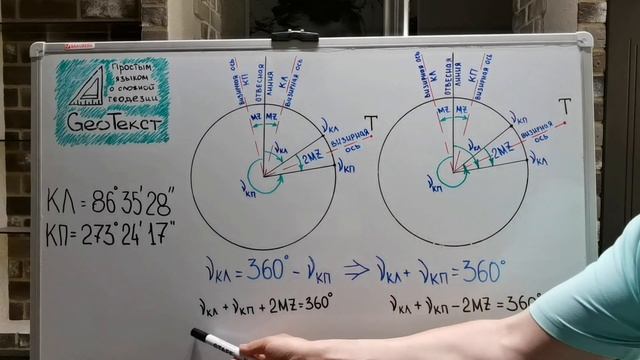 Простым
языком
о сложной
геодезии
GeoТекст
КЛ = 86°35'28"
КП = 273°24'17"
визирная ось
КП
ОТВЕСНАЯ
ЛИНИЯ
КЛ
визирная ось
MZ MZ
νкл
νкл
2MZ
νкп
νкп
визирная
ось
Т
визирная ось
КЛ
ОТВЕСНАЯ
ЛИНИЯ
КП
визирная ось
MZ MZ
νкп
νкл
2MZ
νкл
νкп
визирная
ось
Т
νкл = 360° - νкп ⇒ νкл + νкп = 360°
νкл + νкп + 2MZ = 360°
νкл + νкп - 2MZ = 360°